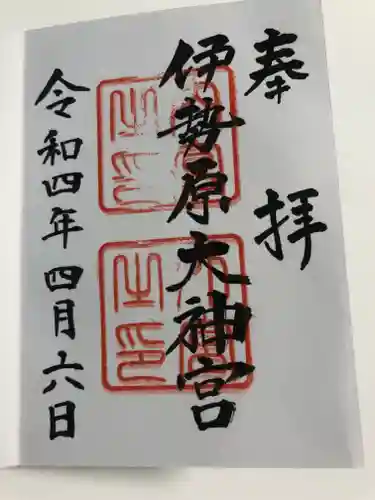 奉拝
伊勢原大神宮
令和四年四月六日